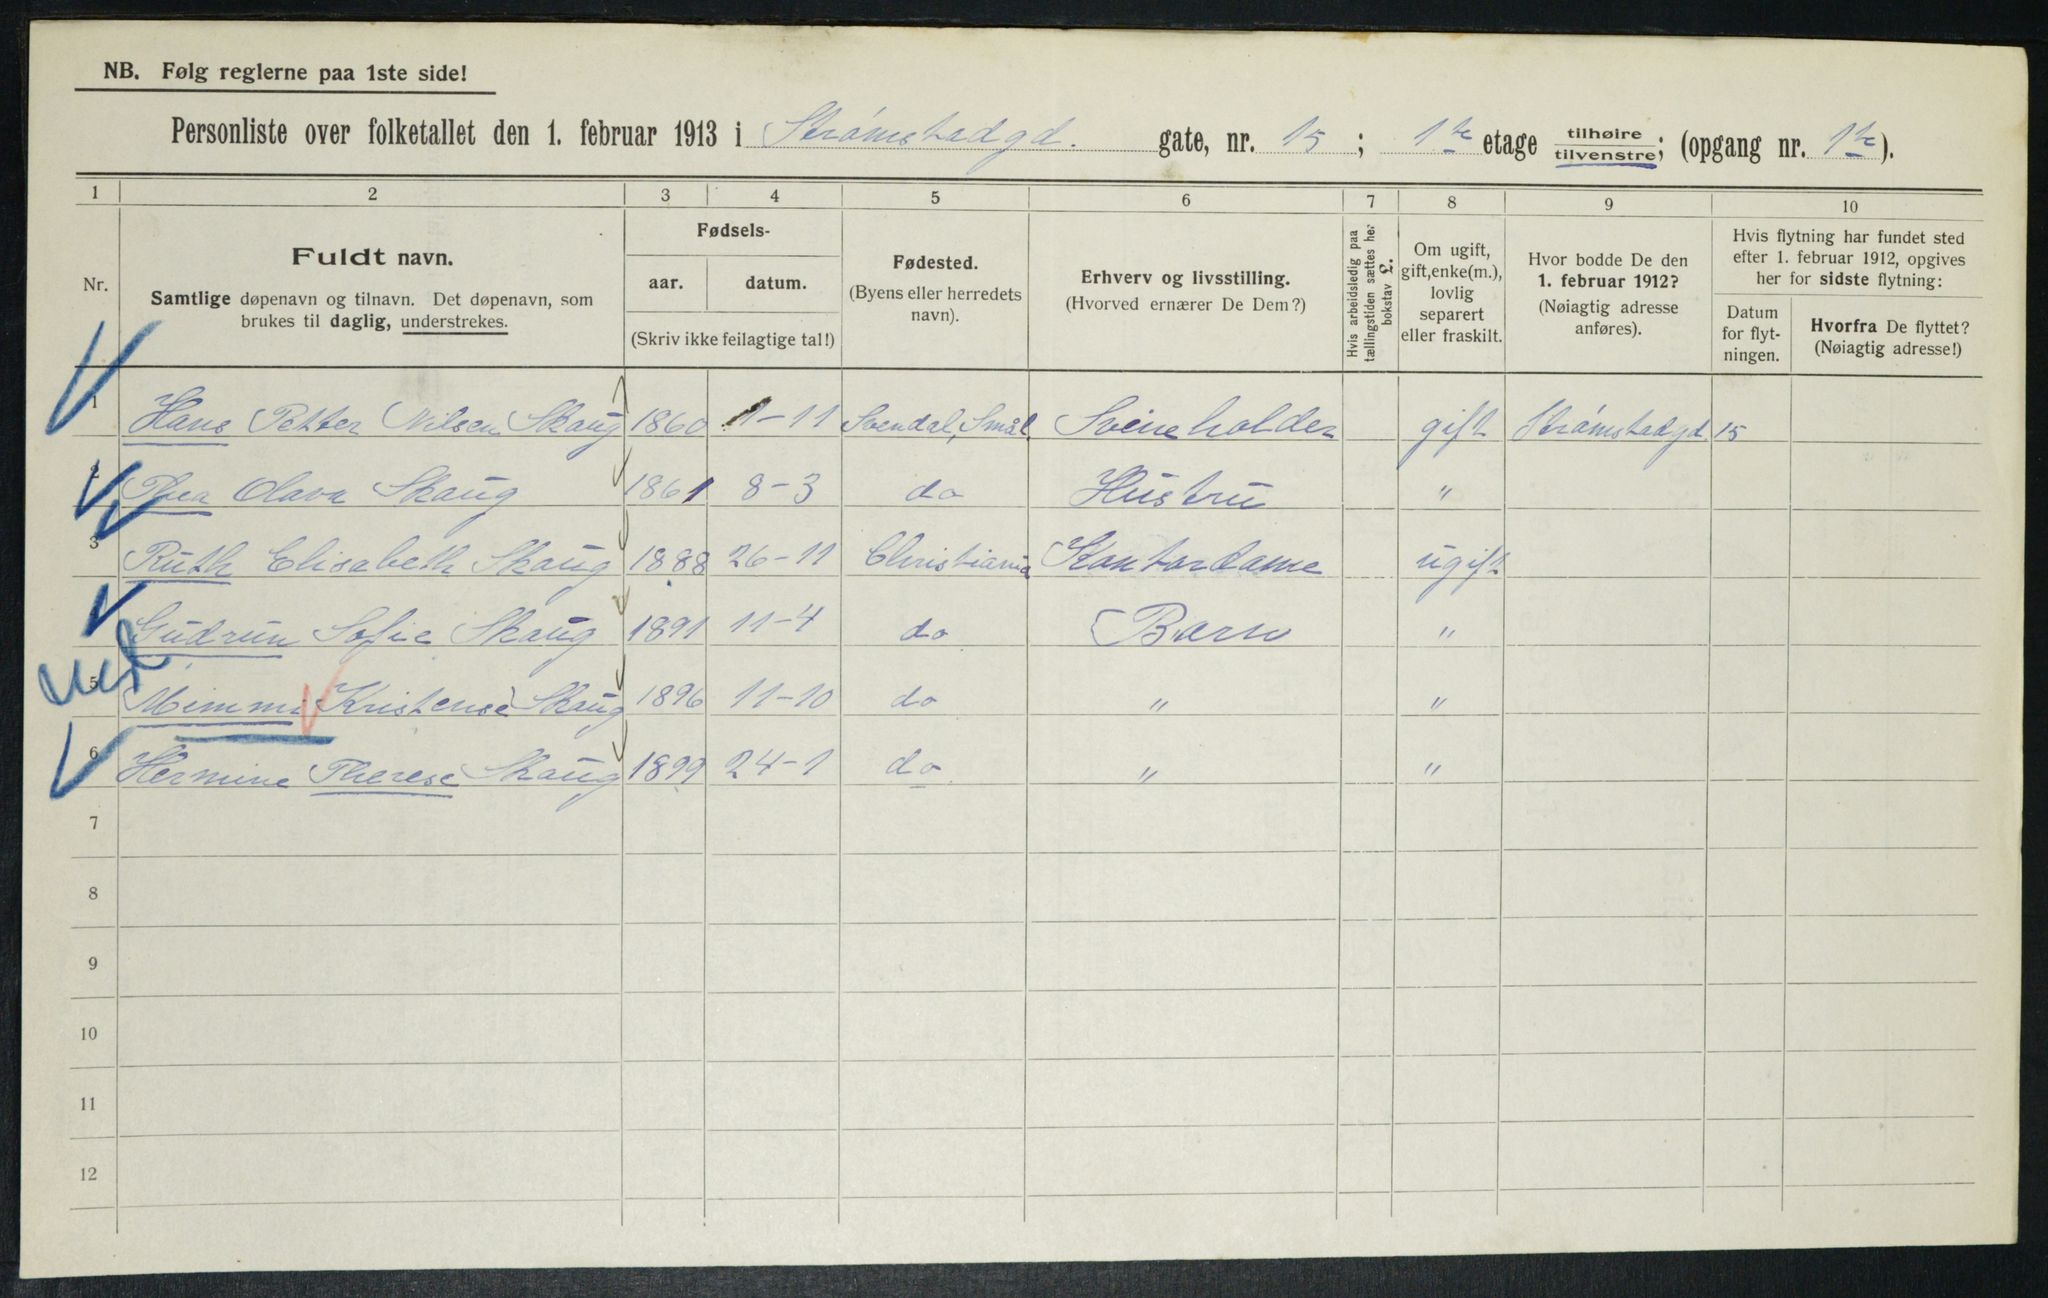 NB. Følg reglerne paa 1ste side!
Personliste over folketallet den 1. februar 1913 i Strømstadgd. gate, nr. 15; 1ste etage tilhøire tilvenstre; (opgang nr. 1ste).
1 2 3 4 5 6 7 8 9 10
Nr.
Fuldt navn.
Samtlige døpenavn og tilnavn. Det døpenavn, som
brukes til daglig, understrekes.
Fødsels-
aar. datum.
(Skriv ikke feilagtige tal!)
Fødested.
(Byens eller herredets
navn).
Erhverv og livsstilling.
(Hvorved ernærer De Dem?)
Hvis arbeidsledig paa
tællingstiden sættes her
bokstav L.
Om ugift,
gift, enke(m.),
lovlig
separert
eller fraskilt.
Hvor bodde De den
1. februar 1912?
(Nøiagtig adresse
anføres).
Hvis flytning har fundet sted
efter 1. februar 1912, opgives
her for sidste flytning:
Datum
for flyt-
ningen.
Hvorfra De flyttet?
(Nøiagtig adresse!)
1 Hans Petter Nilsen Skaug 1860 1-11 Svendal, Smål. Sveineholder gift Strømstadgd. 15
2 Thea Olava Skaug 1861 8-3 do Hustru "
3 Ruth Elisabeth Skaug 1888 26-11 Christiania Kontordame ugift
4 Gudrun Sofie Skaug 1891 11-4 do Barn "
5 Mimmi Kristense Skaug 1896 11-10 do " "
6 Hermine Therese Skaug 1899 24-1 do " "
7
8
9
10
11
12